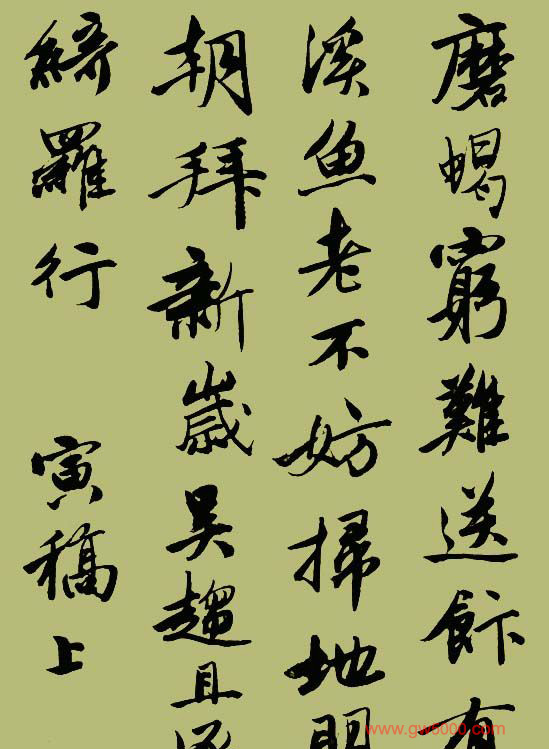 磨蝎窮難送飰有
溪魚老不妨掃地明
朝拜新歲吴趨且逐
綺羅行
寅稿上
www.gw8000.com